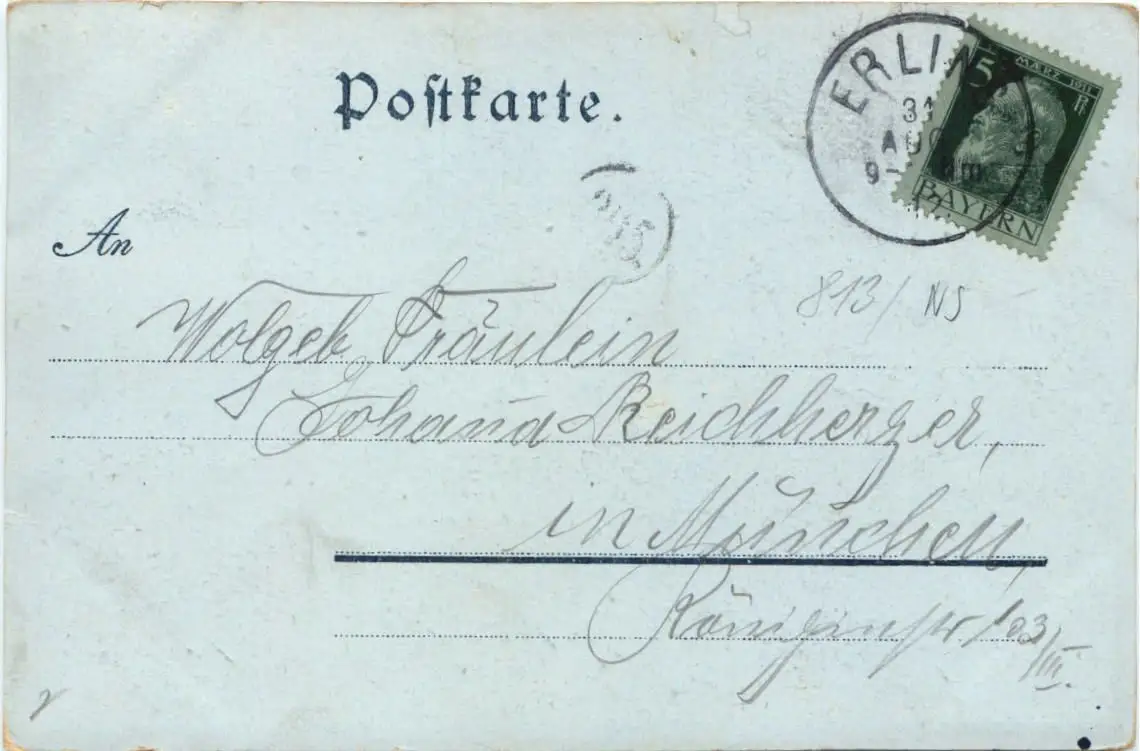 Postkarte.
ERLIN
31
AUG
9-
5
MÄRZ 1911
R
BAYERN
An
813/ NS
Wolgeb Fräulein
Johana Reichberger,
in München,
Königinstr 103/III.